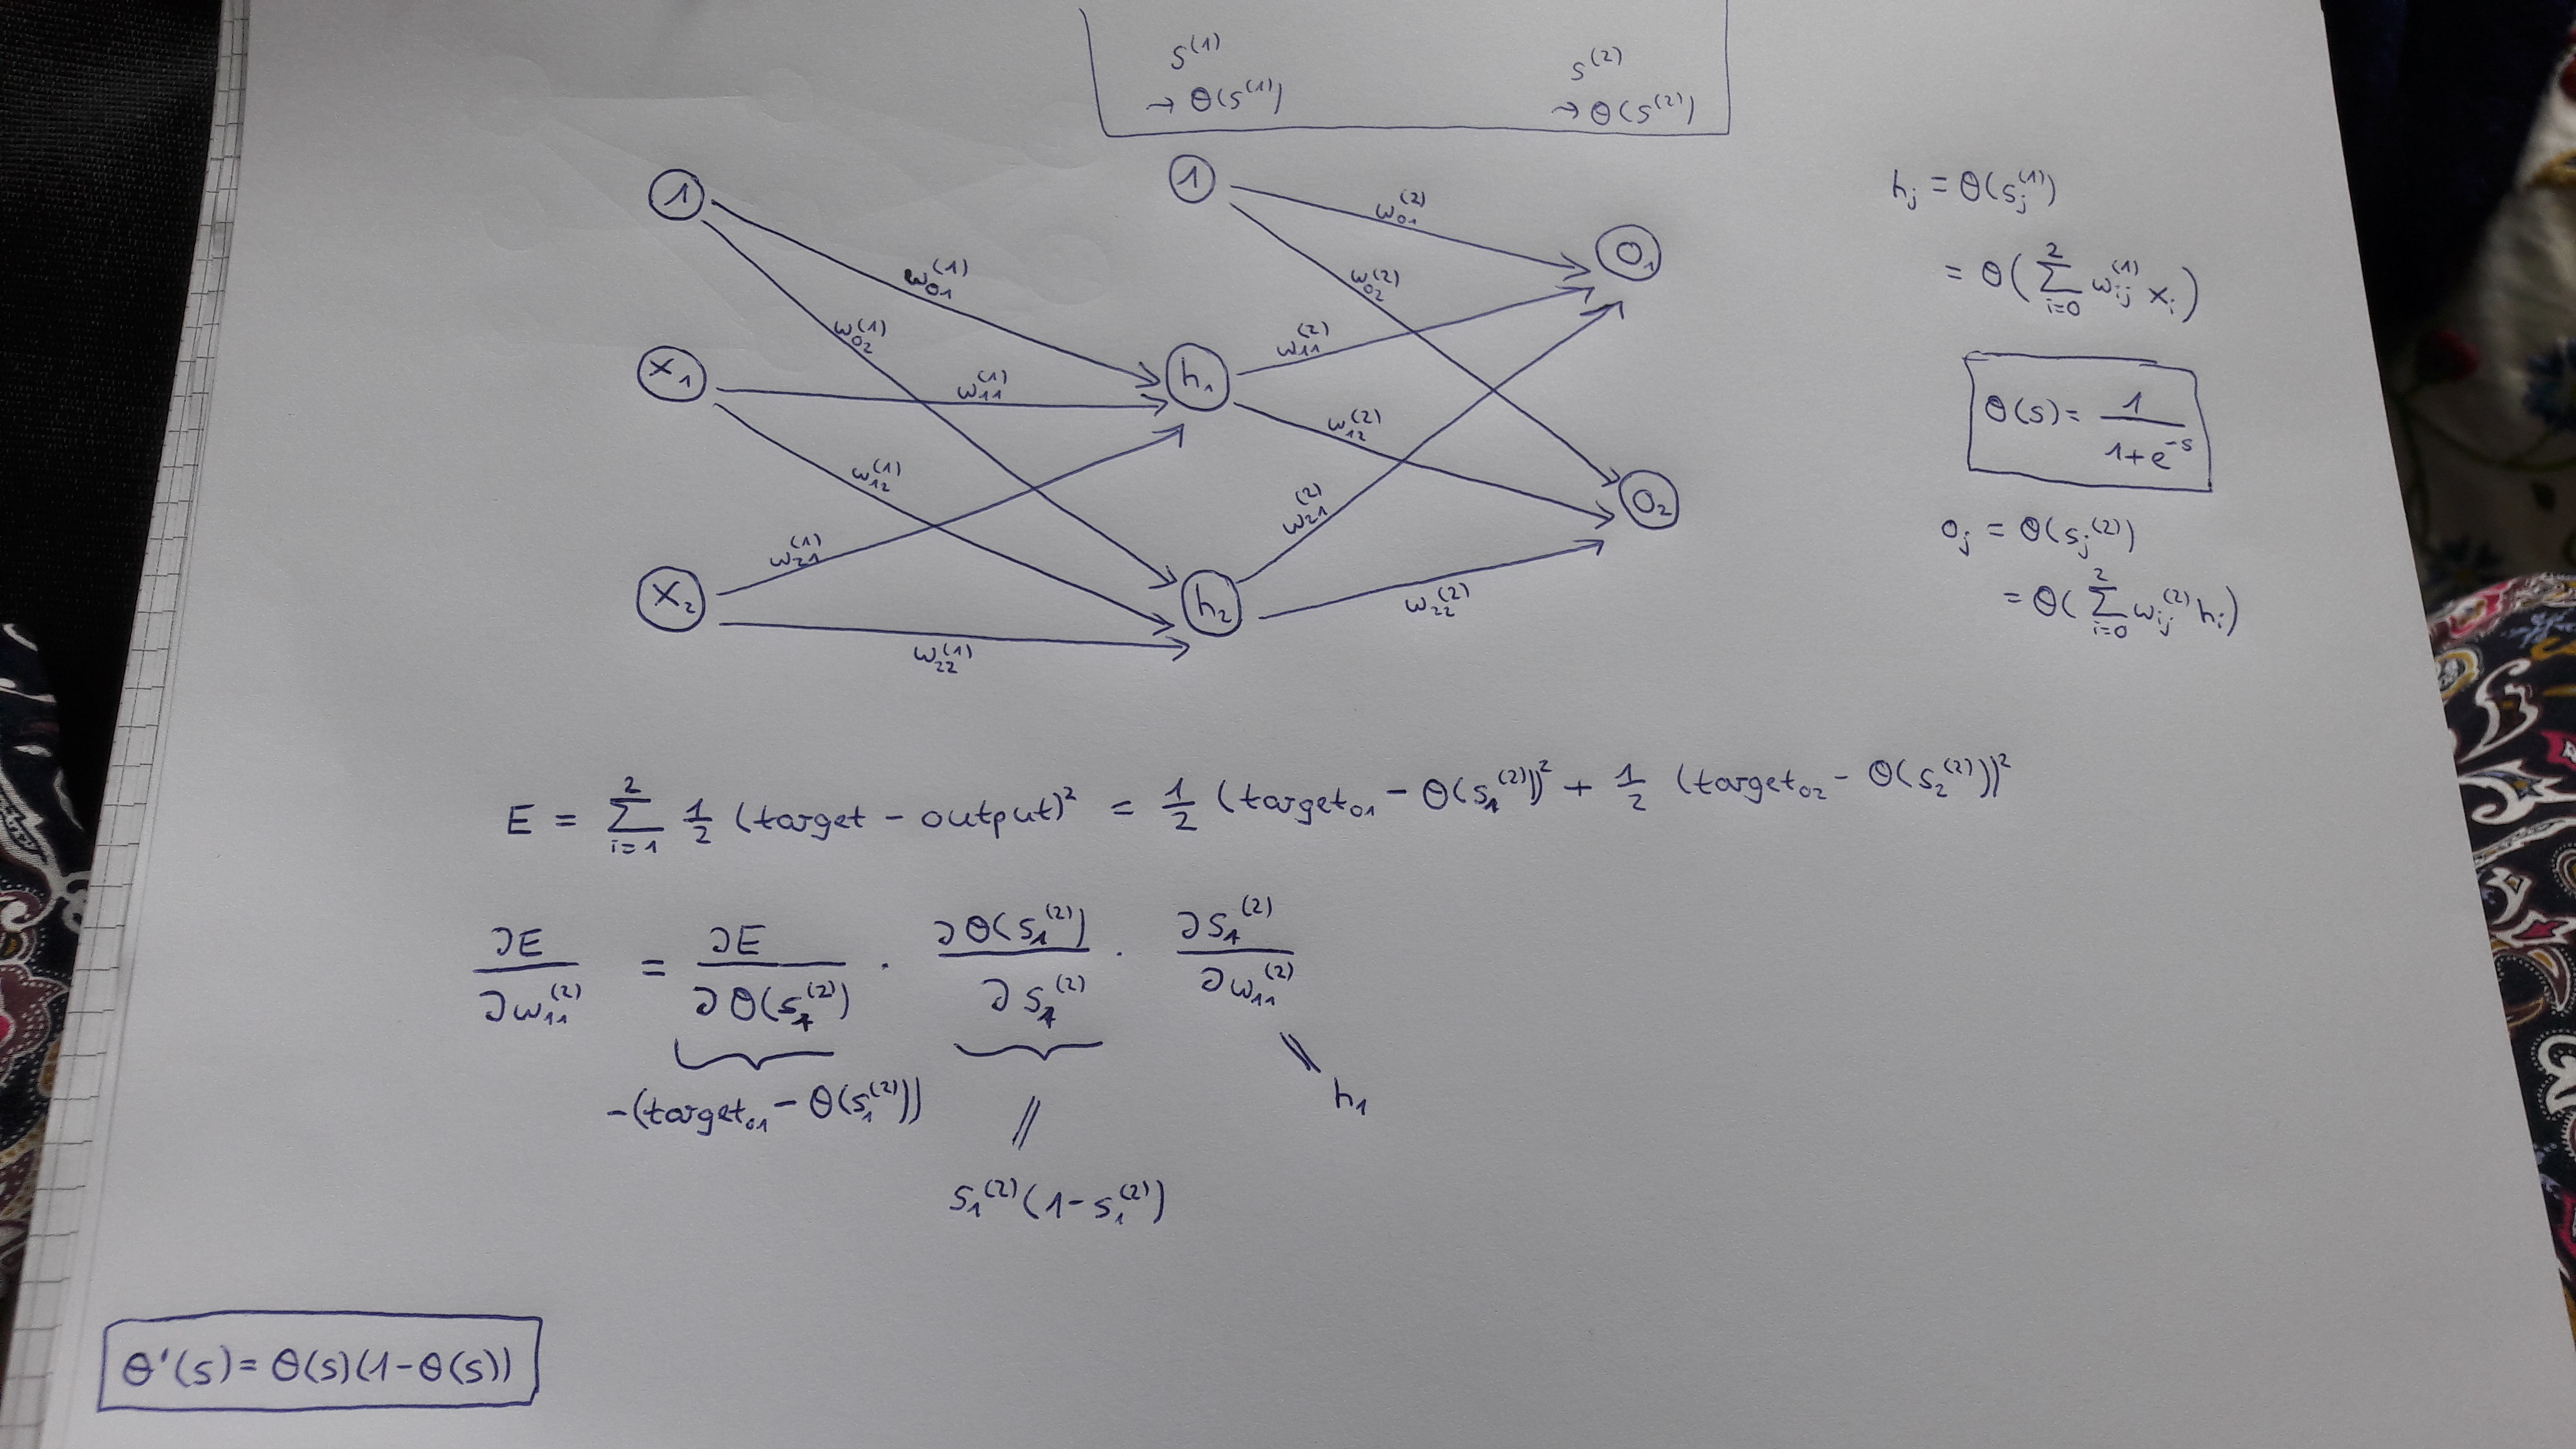 s⁽¹⁾ s⁽²⁾
→ θ(s⁽¹⁾) → θ(s⁽²⁾)
1 1
w₀₁⁽²⁾
o₁
w₀₁⁽¹⁾
w₀₂⁽²⁾
w₀₂⁽¹⁾
w₁₁⁽²⁾
x₁ h₁
w₁₁⁽¹⁾
w₁₂⁽²⁾
w₁₂⁽¹⁾
o₂
w₂₁⁽²⁾
w₂₁⁽¹⁾
x₂ h₂
w₂₂⁽²⁾
w₂₂⁽¹⁾
hⱼ = θ(sⱼ⁽¹⁾)
= θ(∑_{i=0}^{2} wᵢⱼ⁽¹⁾ xᵢ)
θ(s) = 1 / (1+e^{-s})
oⱼ = θ(sⱼ⁽²⁾)
= θ(∑_{i=0}^{2} wᵢⱼ⁽²⁾ hᵢ)
E = ∑_{i=1}^{2} 1/2 (target - output)² = 1/2 (target_{o1} - θ(s₁⁽²⁾))² + 1/2 (target_{o2} - θ(s₂⁽²⁾))²
∂E / ∂w₁₁⁽²⁾ = ∂E / ∂θ(s₁⁽²⁾) · ∂θ(s₁⁽²⁾) / ∂s₁⁽²⁾ · ∂s₁⁽²⁾ / ∂w₁₁⁽²⁾
-(target_{o1} - θ(s₁⁽²⁾)) || || h₁
s₁⁽²⁾(1-s₁⁽²⁾)
θ'(s) = θ(s)(1-θ(s))